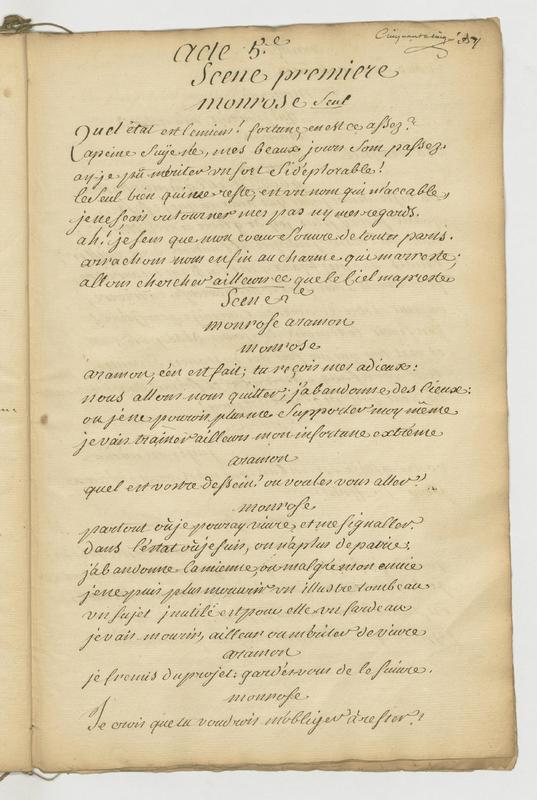 Cinquante cinq 55
acte 5.e
Scene premiere
monrose seul
Quel état est lemien! fortune, en est ce assez?
apeine suije né, mes beaux jours sont passez.
ay je pû meriter un sort si deplorable!
le seul bien qui me reste, est un nom qui m'accable,
je ne sçais ou tourner mes pas ny mes regards.
ah! je sens que mon coeur s'ouvre de toutes parts.
arrachons nous enfin au charme qui m'arreste;
allons chercher ailleurs ce que le Ciel m'apreste
Scene 2.e
monrose aramon
monrose
aramon, c'en est fait; tu reçois mes adieux:
nous allons nous quitter: j'abandonne des lieux:
ou je ne pourois plus me supporter moy même
je vais trainer ailleurs mon infortune extrême
aramon
quel est vostre dessein? ou voulez vous aller?
monrose
partout où je pouray vivre, et me signaller.
dans l'état où je suis, on n'a plus de patrie;
j'abandonne la mienne, où malgré mon envie
je ne puis plus mourir un illustre tombeau
un sujet inutile est pour elle un fardeau
je vais mourir, ailleur ou meriter de vivre
aramon
je fremis du projet: gardez vous de le suivre.
monrose
Je crois que tu voudrois m'obliger à rester!